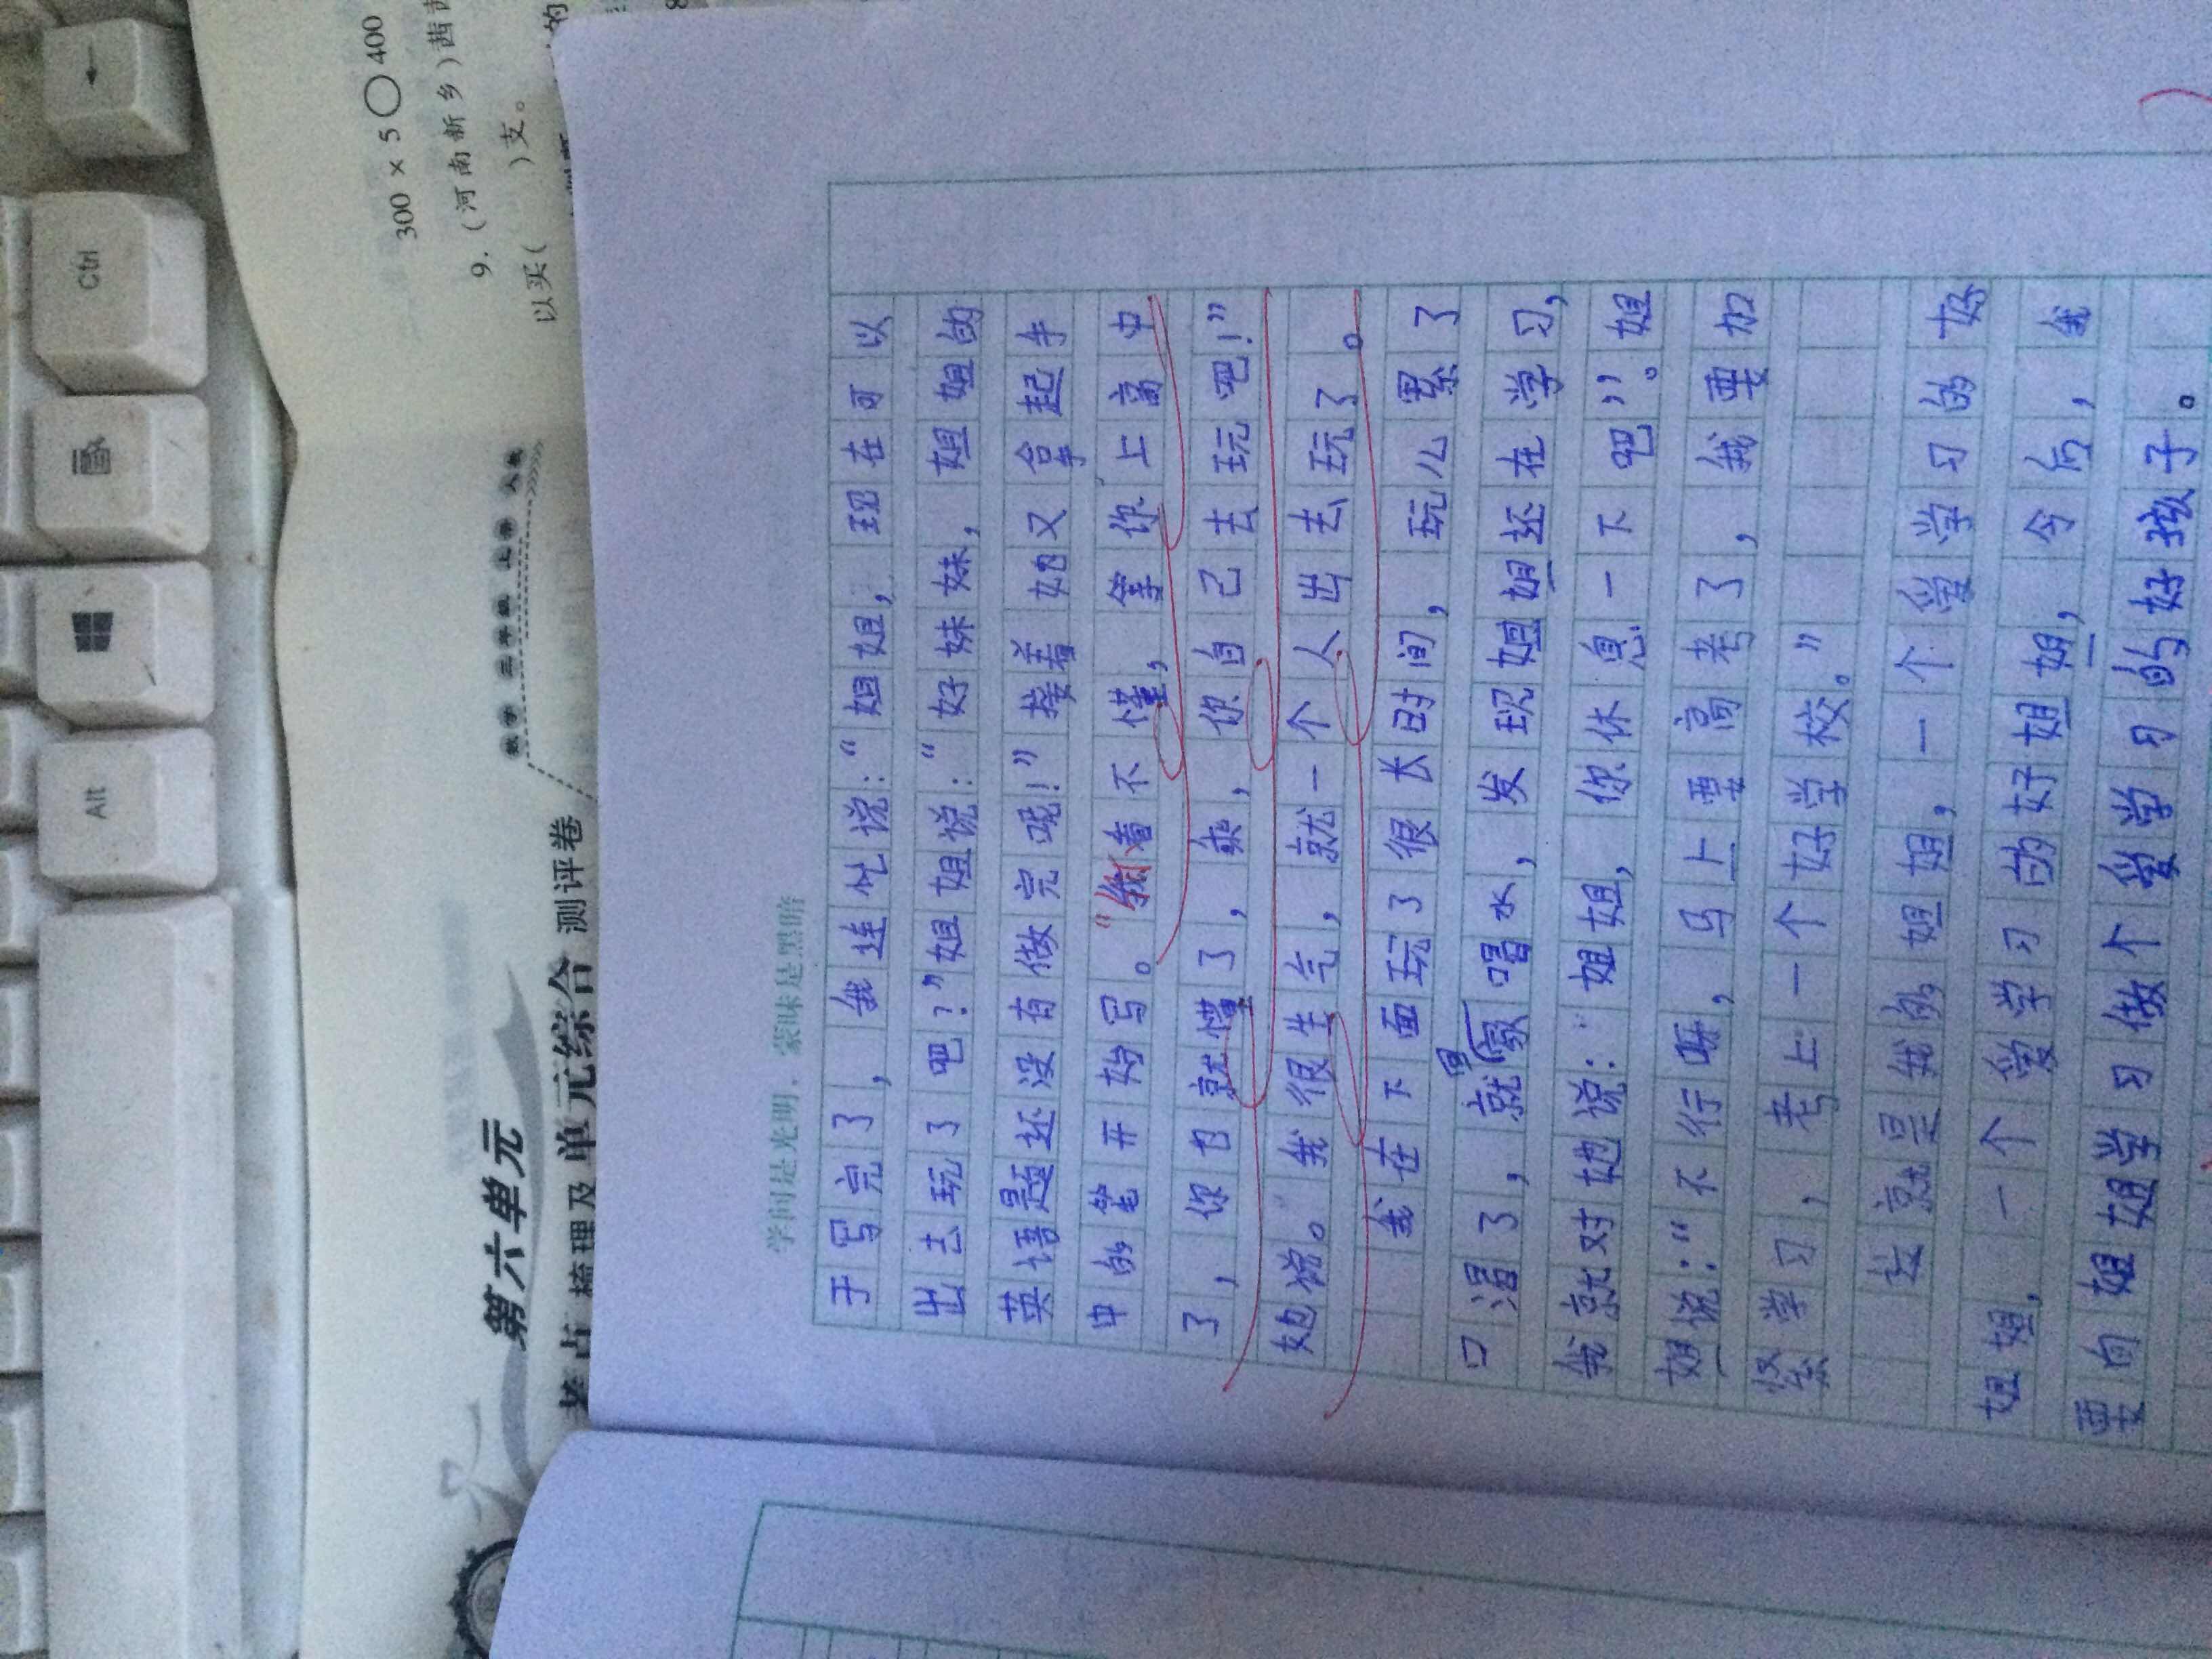 学问是光明，蒙昧是黑暗
于写完了，我连忙说：“姐姐，现在可以
出去玩了吧？”姐姐说：“好妹妹，姐姐的
英语题还没有做完呢！”接着她又拿起手
中的笔开始写。“我看不懂，等你上高中
了，你也就懂了，爽，你自己去玩吧！”
她说。我很生气，就一个人出去玩了。
我在下面玩了很长时间，玩儿累了
口渴了，就回家喝水，发现姐姐还在学习，
我就对她说：“姐姐，你休息一下吧”。姐
姐说：“不行呀，马上要高考了，我要加
紧学习，考上一个好学校。”
这就是我的姐姐，一个爱学习的好
姐姐，一个爱学习的好姐姐，今后，我
要向姐姐学习做个爱学习的好孩子。
300 × 5 ○ 400
9. （河南新乡）茜茜
以买（ ）支。
数学 三年级 上册 人教
第六单元
考点梳理及单元综合 测评卷
Ctrl
Alt